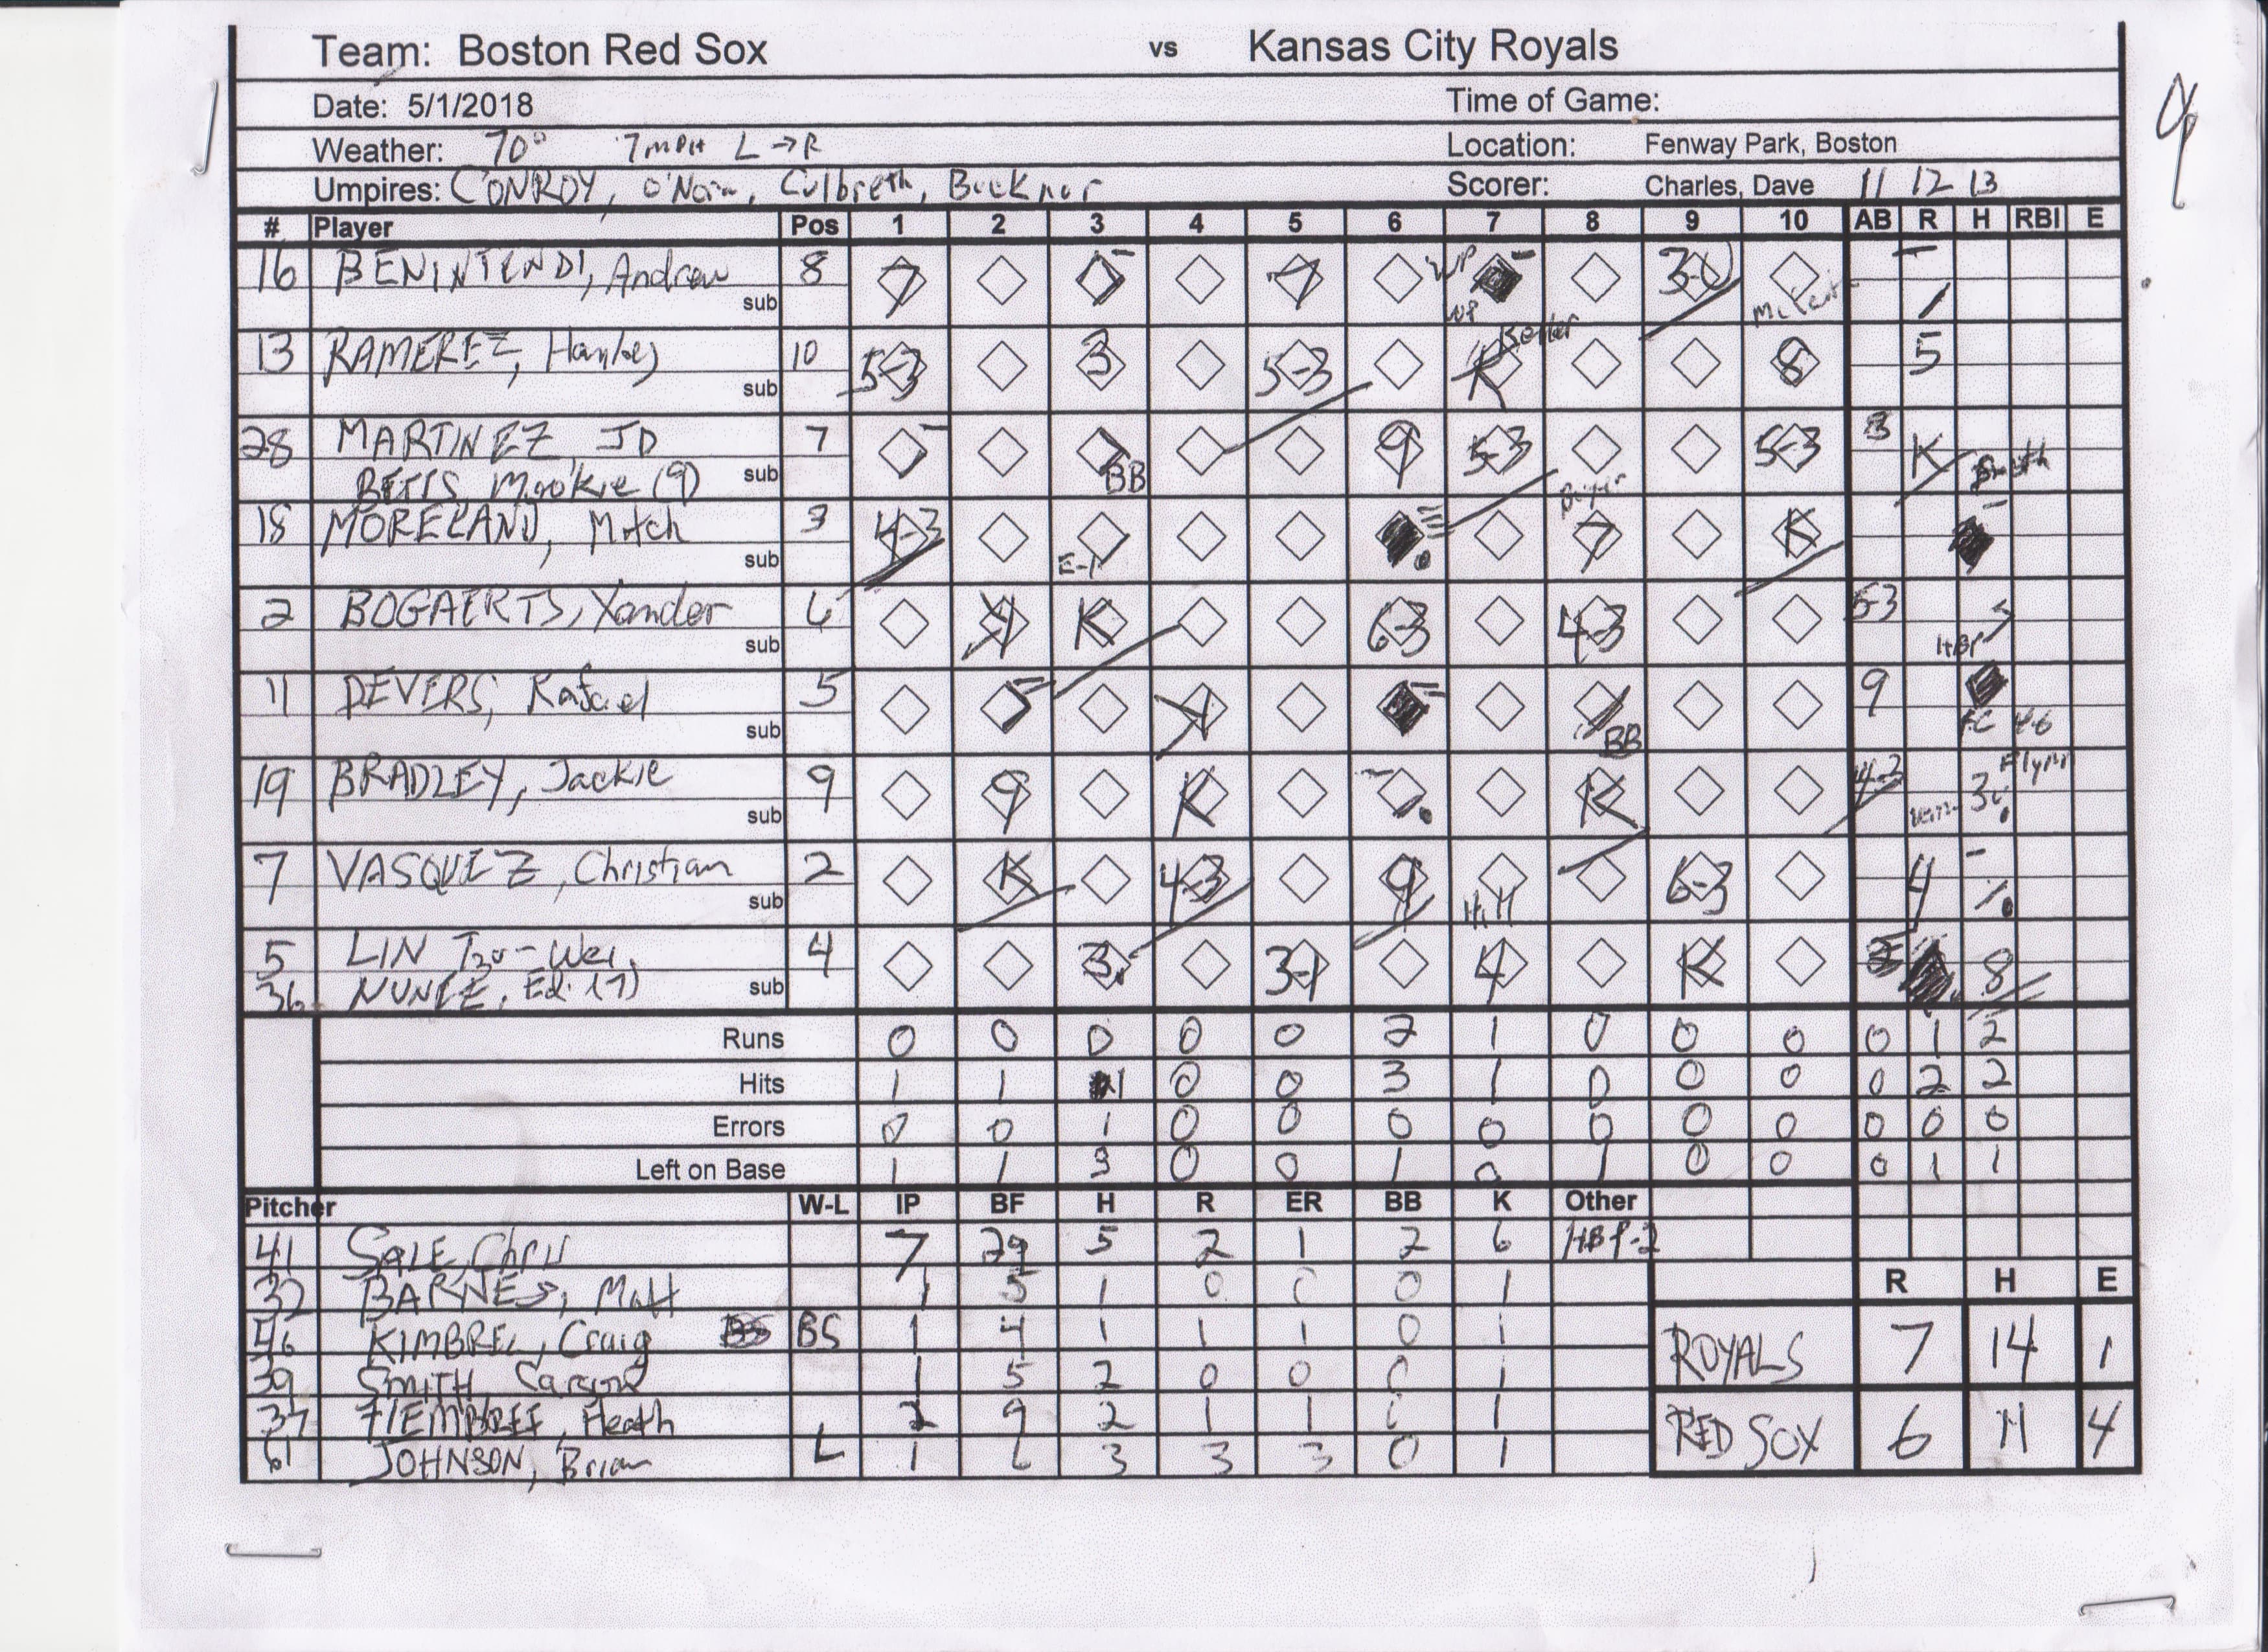 Team: Boston Red Sox vs Kansas City Royals
Date: 5/1/2018 Time of Game:
Weather: 70° 7mph L→R Location: Fenway Park, Boston
Umpires: CONROY, Culbreth, Scorer: Charles, Dave 11 12 13
# Player Pos 1 2 3 4 5 6 7 8 9 10 AB R H RBI E
16 BENINTENDI, Andrew 8 7 7 WP 3-U
sub
13 RAMEREZ, Hanley 10 5-3 3 5-3 K 8 5
sub
28 MARTINEZ, JD 7 9 5-3 5-3 3 K Smith
BETTS, Mookie (9) sub BB
18 MORELAND, Mitch 3 4-3 E-1 7 K
sub
2 BOGAERTS, Xander 6 K 6-3 4-3 5-3 HBP
sub
11 DEVERS, Rafael 5 BB 9 FC 4-6
sub
19 BRADLEY, Jackie 9 9 K K 4-3
sub
7 VASQUEZ, Christian 2 K 4-3 9 6-3 4
sub
5 LIN Tzu-Wei 4 3 3-1 4 K 8
36 sub
Runs 0 0 0 0 0 2 1 0 0 0 0 1 2
Hits 1 1 1 0 0 3 1 0 0 0 0 2 2
Errors 0 0 1 0 0 0 0 0 0 0 0 0 0
Left on Base 1 1 3 0 0 1 0 1 0 0 0 1 1
Pitcher W-L IP BF H R ER BB K Other
41 SALE, Chris 7 29 5 2 1 2 6 HBP-2
32 BARNES, Matt 1 5 1 0 0 0 1
46 KIMBREL, Craig BS 1 4 1 1 1 0 1
39 SMITH, Carson 1 5 2 0 0 0 1
37 HEMBREE, Heath 2 9 2 1 1 0 1
61 JOHNSON, Brian L 1 6 3 3 3 0 1
R H E
ROYALS 7 14 1
RED SOX 6 11 4